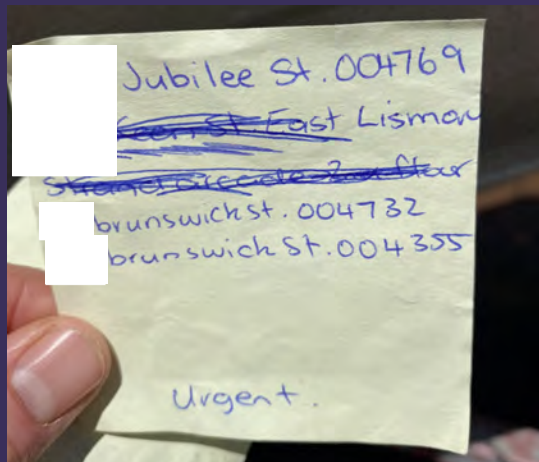 Jubilee St. 004769
East Lismore
brunswick st. 004732
brunswick St. 004355
Urgent.